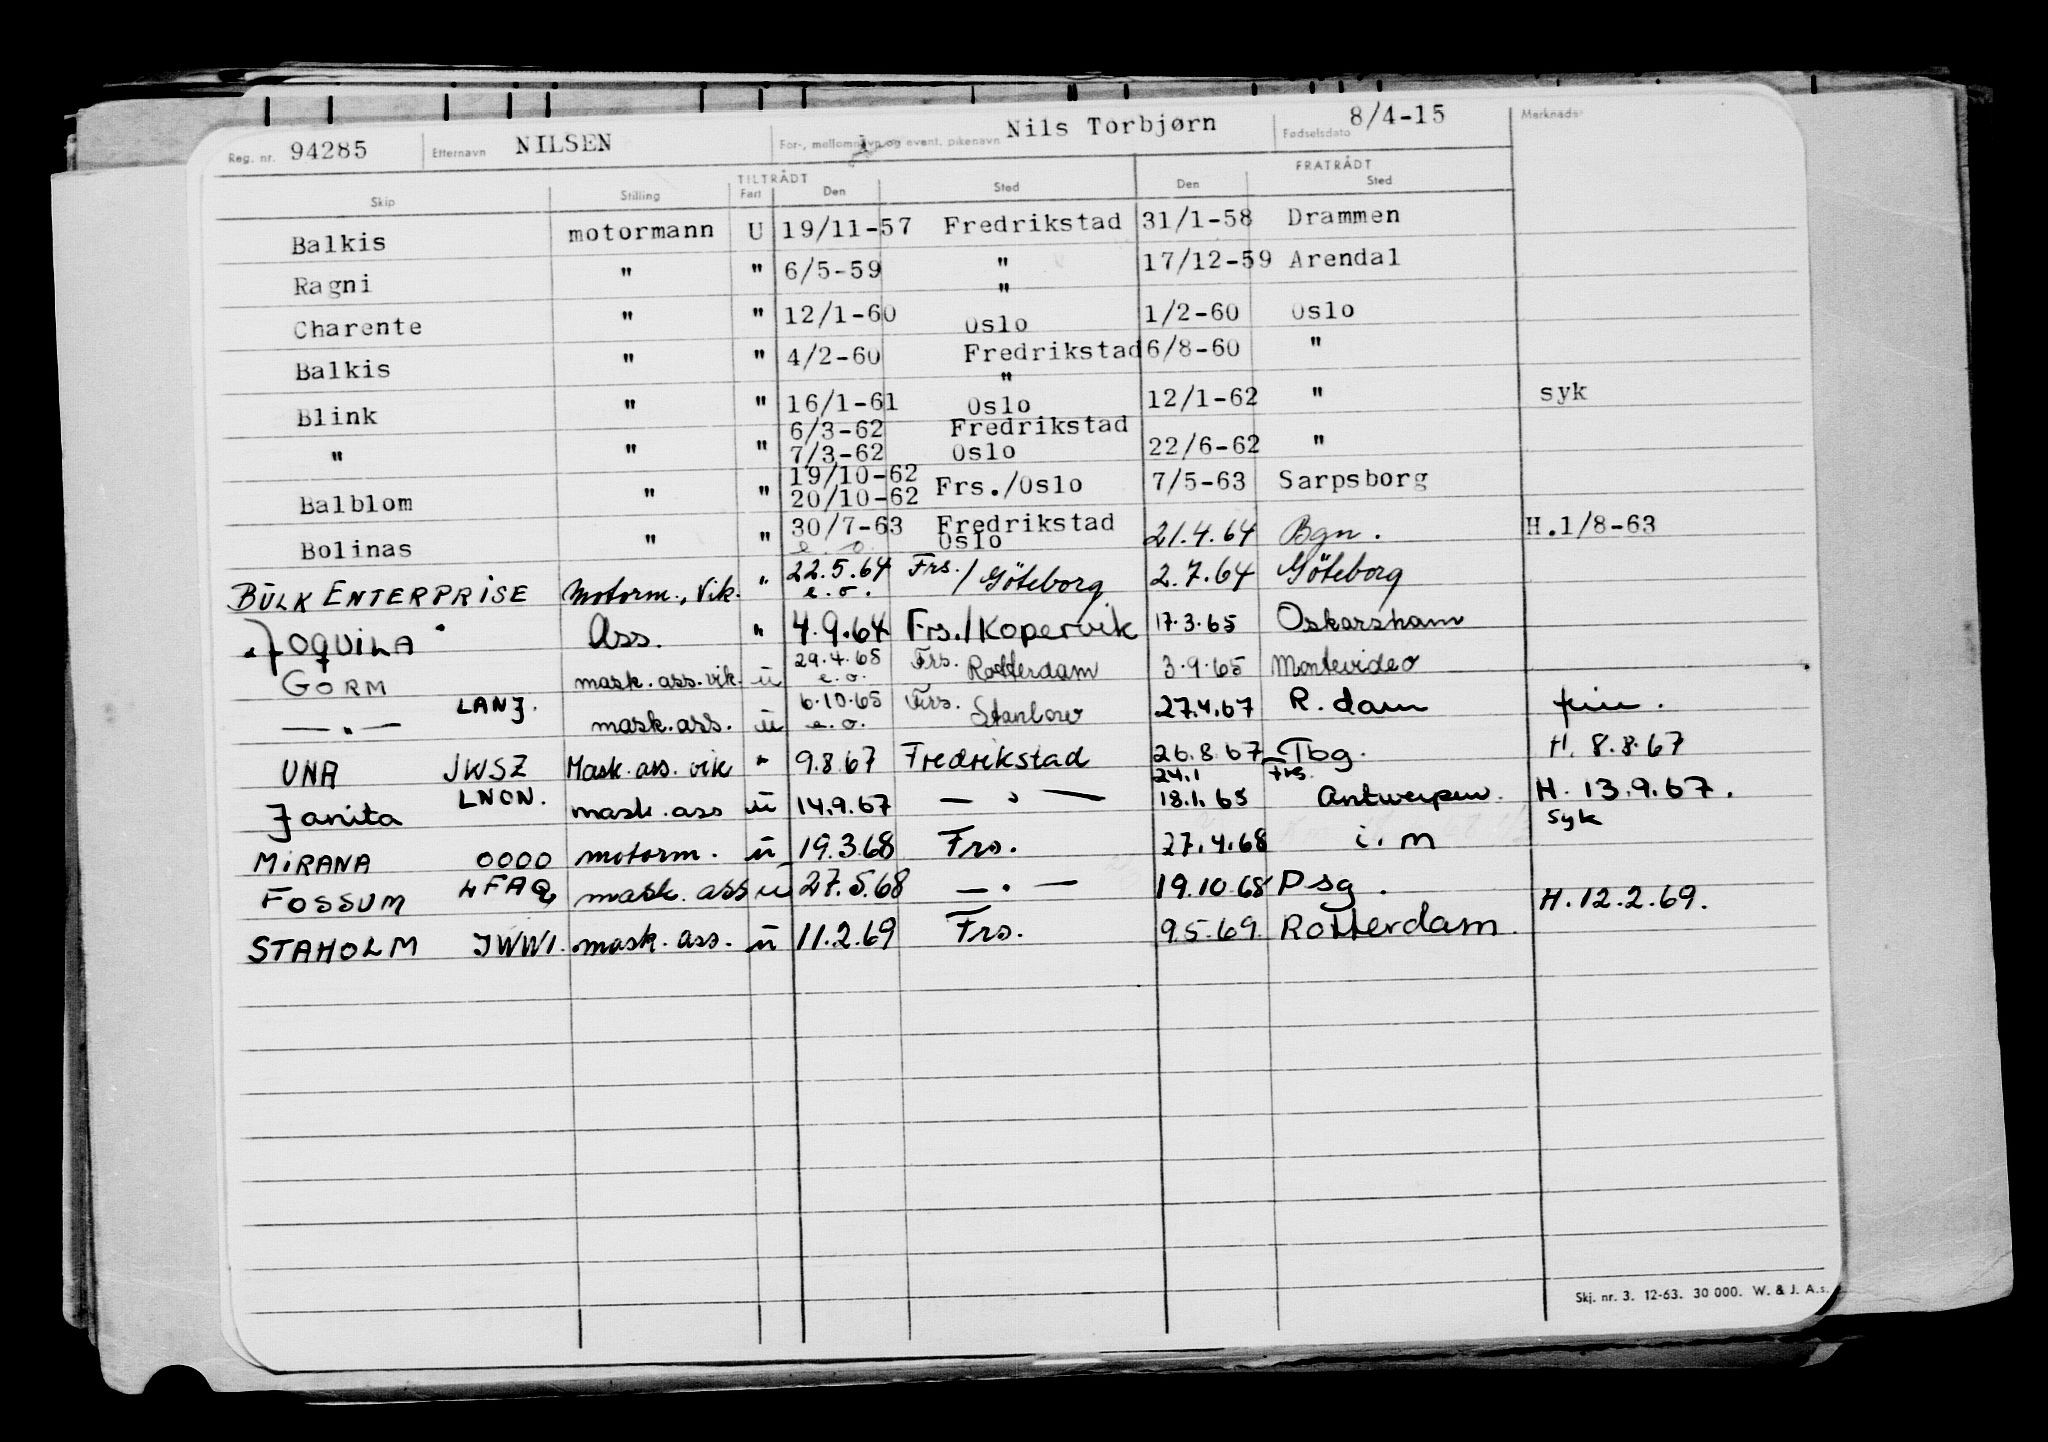 Reg. nr. 94285 Etternavn NILSEN For-, mellomnavn og event. pikenavn Nils Torbjørn Fødselsdato 8/4-15 Merknader
TILTRÅDT FRATRÅDT
Skip Stilling Fart Den Sted Den Sted
Balkis motormann U 19/11-57 Fredrikstad 31/1-58 Drammen
Ragni " " 6/5-59 " 17/12-59 Arendal
Charente " " 12/1-60 " Oslo 1/2-60 Oslo
Balkis " " 4/2-60 Fredrikstad 6/8-60 "
Blink " " 16/1-61 " Oslo 12/1-62 " syk
" " " 6/3-62 7/3-62 Fredrikstad Oslo 22/6-62 "
Balblom " " 19/10-62 20/10-62 Frs./Oslo 7/5-63 Sarpsborg
Bolinas " " 30/7-63 e.o. Fredrikstad Oslo 21.4.64 Bgn. H.1/8-63
BULK ENTERPRISE Motorm., Vik. " 22.5.64 e.o. Frs./Göteborg 2.7.64 Göteborg
OQUILA Ass. " 4.9.64 Frs./Kopervik 17.3.65 Oskarshamn
GORM mask. ass. vik. u 29.4.65 e.o. Frs. Rotterdam 3.9.65 Montevideo
— " — LANJ. mask. ass. u 6.10.65 e.o. Frs. Stanlow 27.4.67 R.dam
UNA JWSZ Mask. ass. vik " 9.8.67 Fredrikstad 26.8.67 Tbg. H. 8.8.67
Janita LNON. mask. ass u 14.9.67 — " — 24.1 18.1.68 Frs. Antwerpen. H. 13.9.67. Syk
MIRANA OOOO motorm. u 19.3.68 Frs. 27.4.68 i.m
FOSSUM LFAQ mask. ass u 27.5.68 — " — 19.10.68 Psg.
STAHOLM JWWI. mask. ass. u 11.2.69 Frs. 9.5.69. Rotterdam. H. 12.2.69.
Skj. nr. 3. 12-63. 30 000. W. & J. A.s.